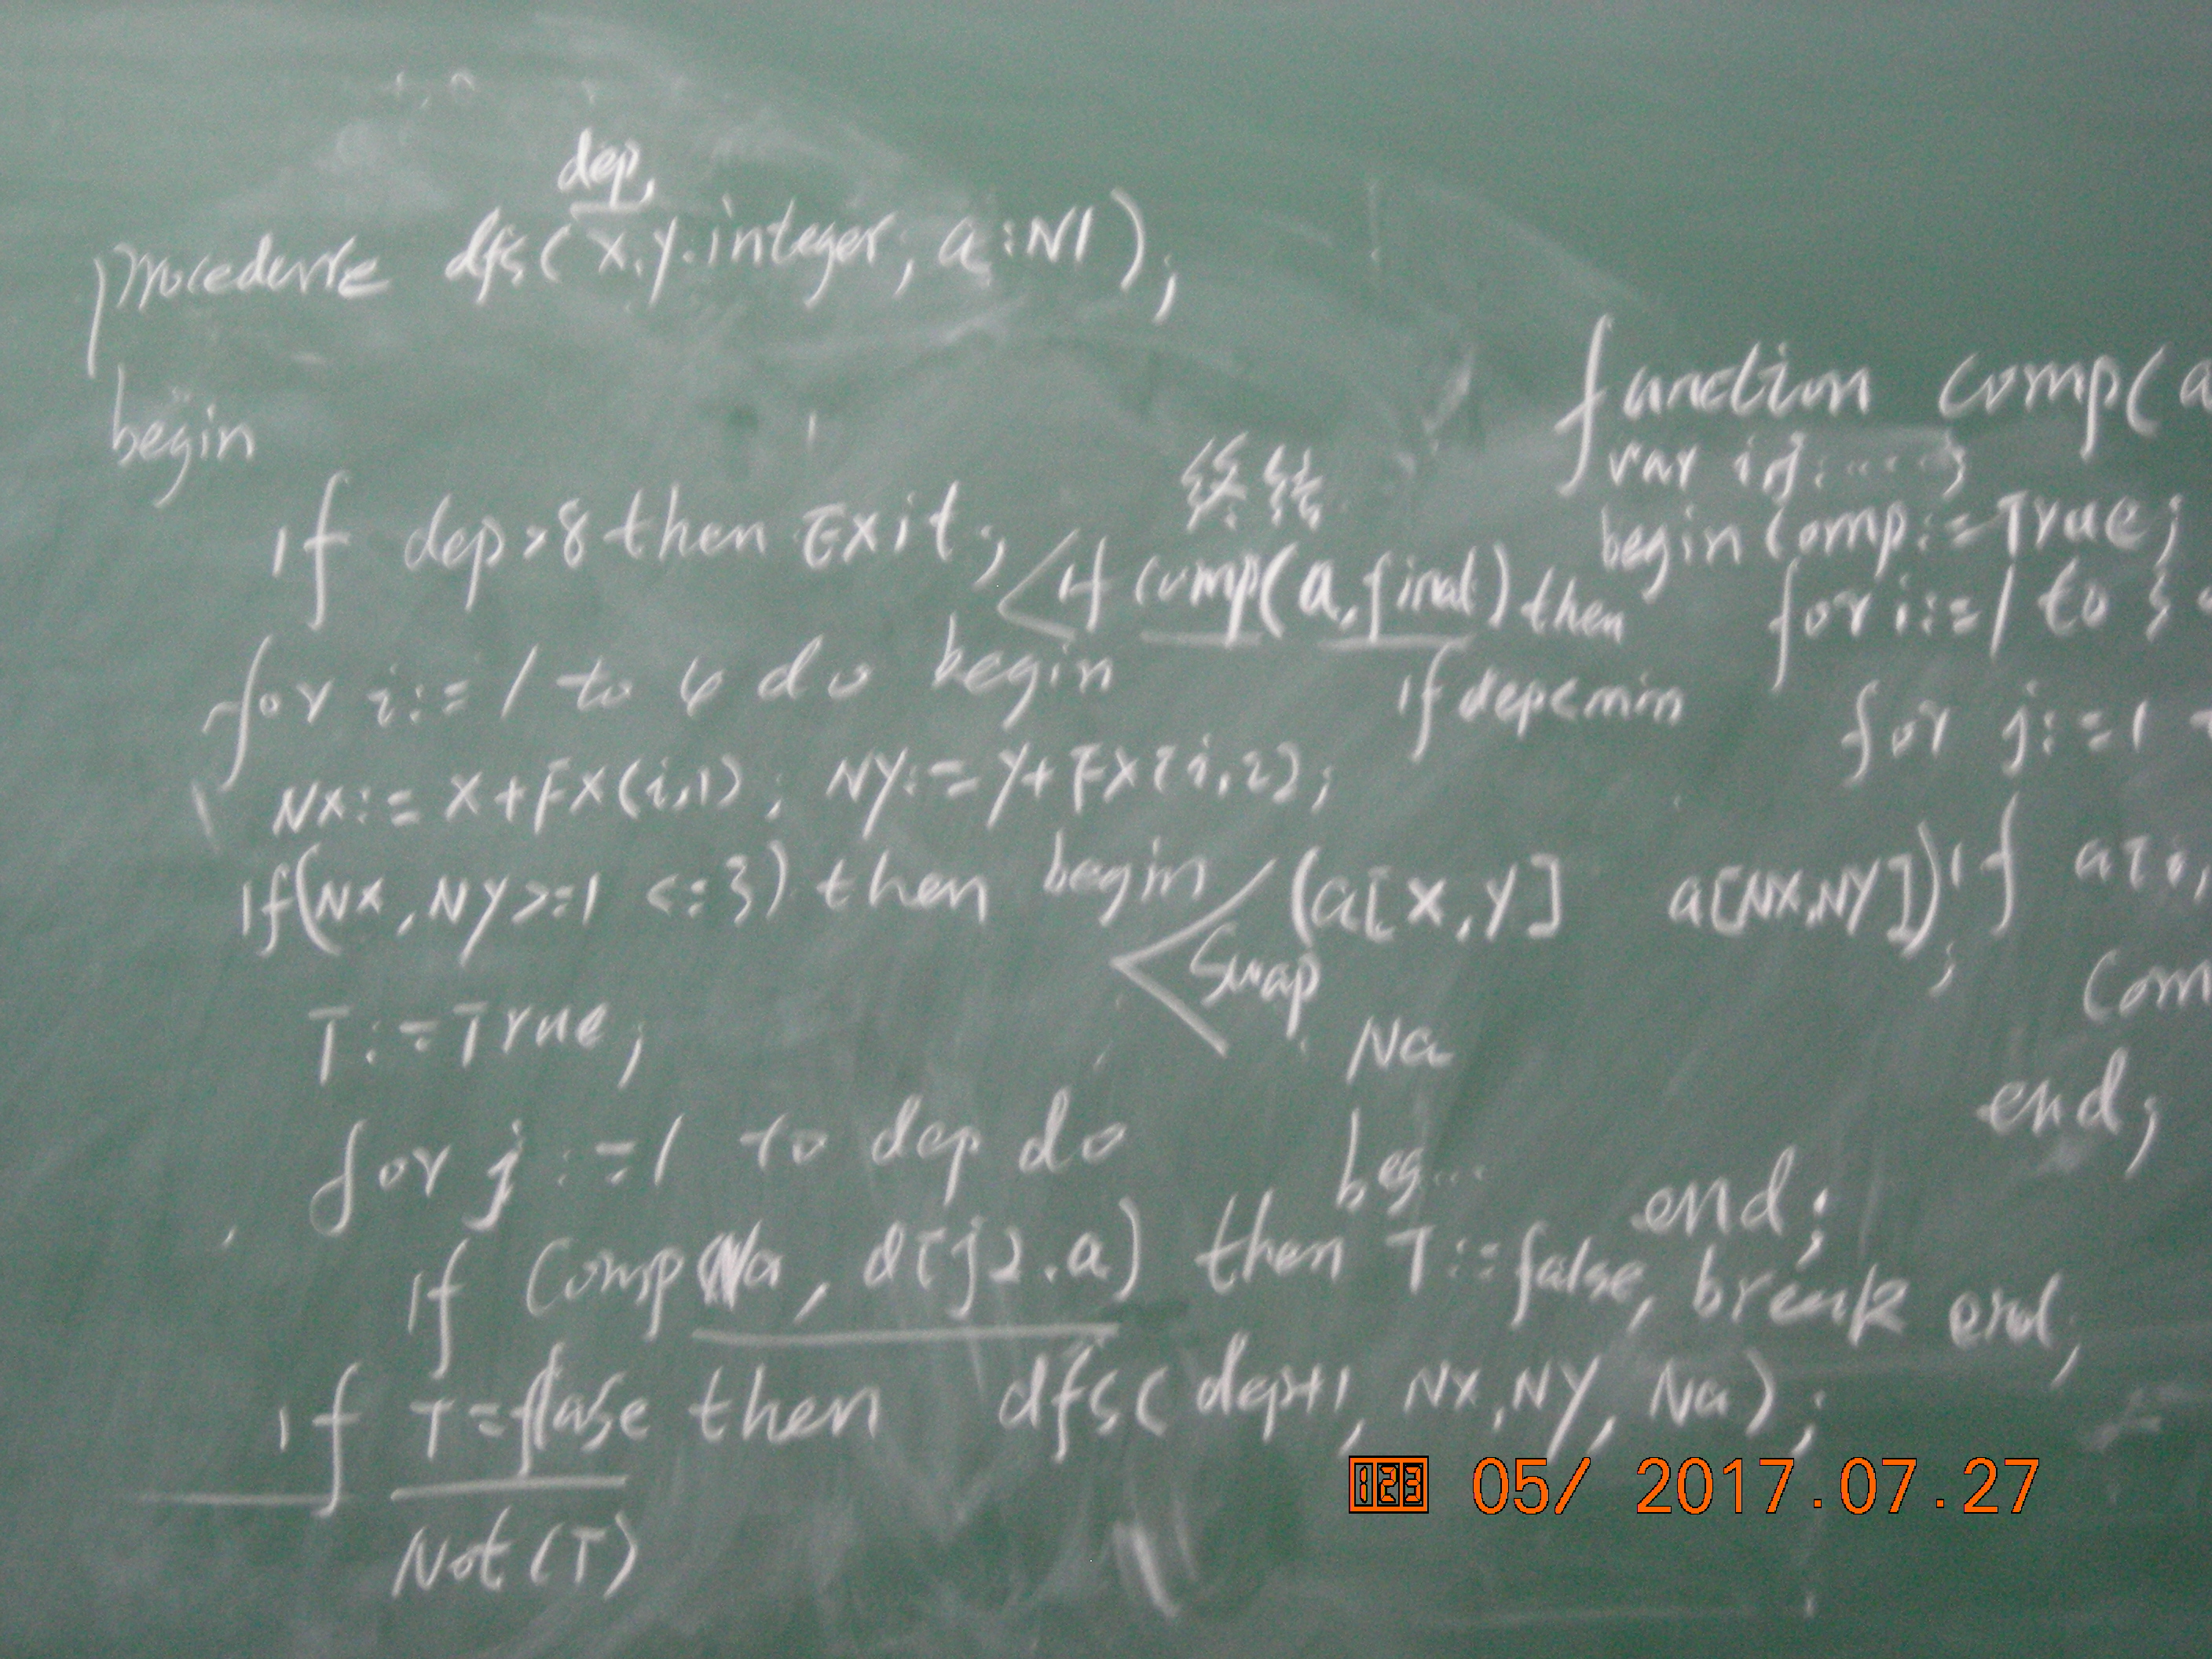 dep,
procedure dfs( x.y.integer, a:N1 );
begin
if dep>8 then Exit;
终结
if comp(a,final) then
if dep<min
for i:=1 to 4 do begin
Nx:=x+Fx(i,1); Ny:=y+Fx[i,2];
if(Nx,Ny>=1 <=3) then begin
Swap (a[x,y] a[Nx,Ny]);
Na
T:=True;
for j:=1 to dep do
beg...
if Comp(Na, d[j].a) then T:=false, break end;
if T=flase then dfs(dep+1, Nx,Ny, Na);
Not(T)
end;
function comp(a
var i,j:....;
begin comp:=True;
for i:=1 to 3
for j:=1
if a[i,
com
end;
123 05/ 2017.07.27